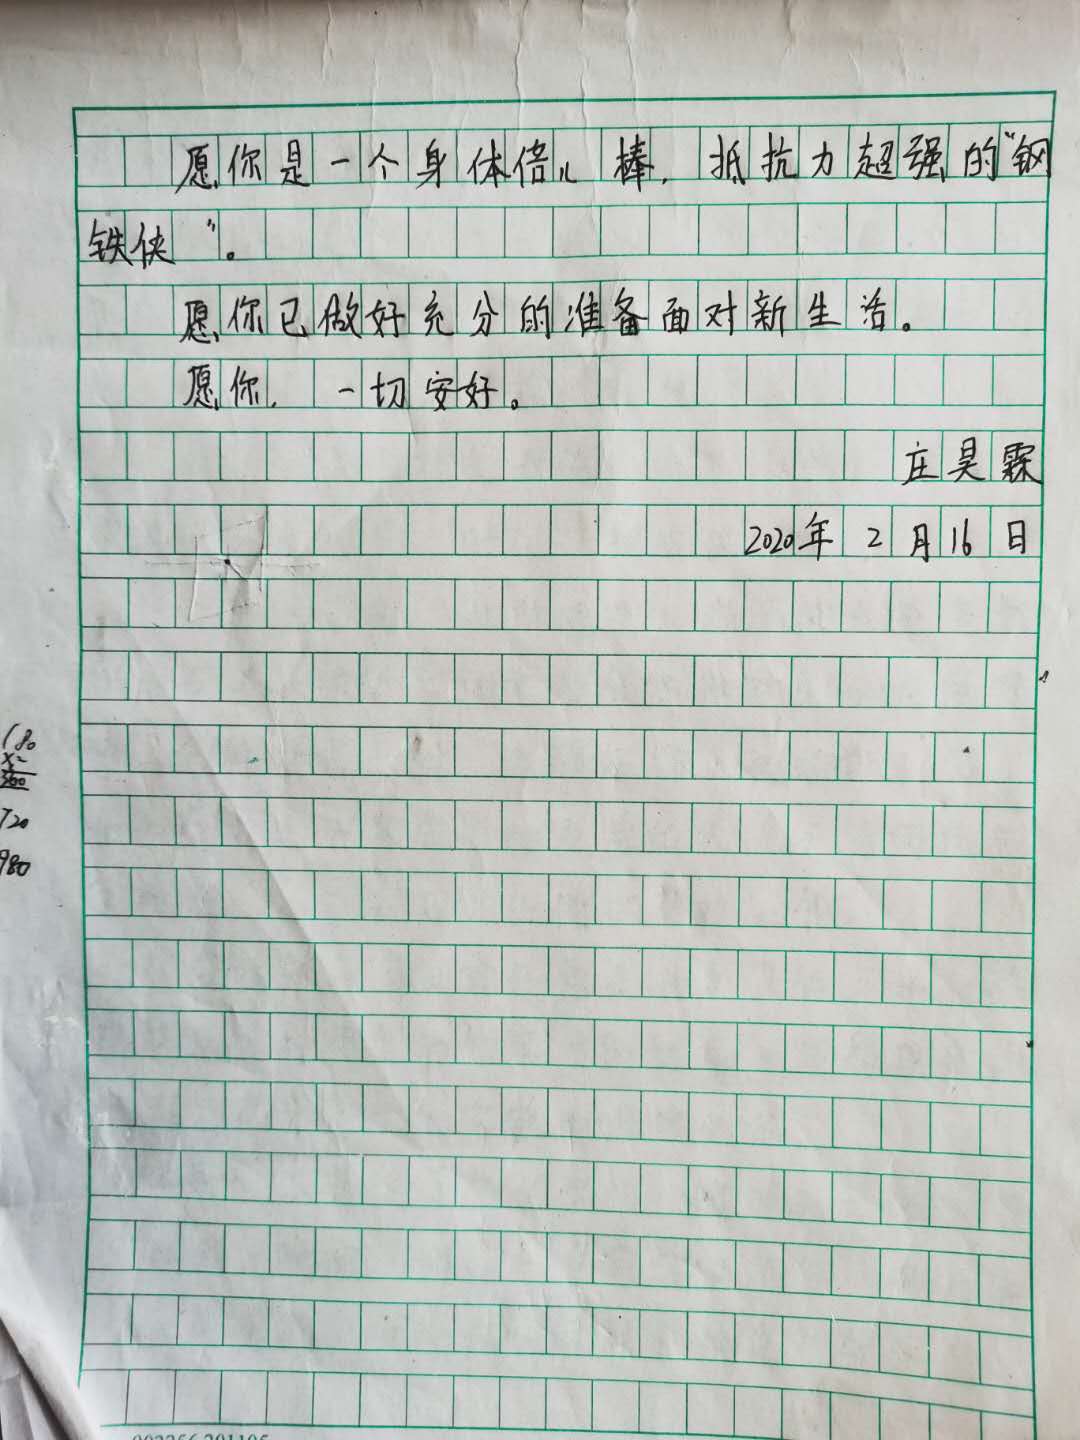 愿你是一个身体倍儿棒，抵抗力超强的“钢
铁侠”。
愿你已做好充分的准备面对新生活。
愿你，一切安好。
庄昊霖
2020年2月16日
180
360
720
980